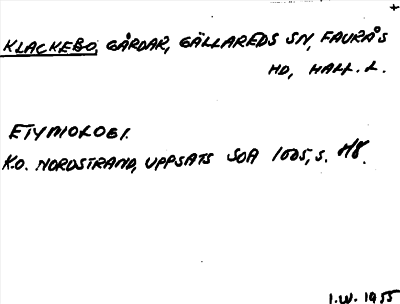 +
KLACKEBO, GÅRDAR, GÄLLAREDS SN, FAURÅS
HD, HALL. L.
ETYMOLOGI.
K.O. NORDSTRAND, UPPSATS SOA 1005, S. 48.
I.W. 1955